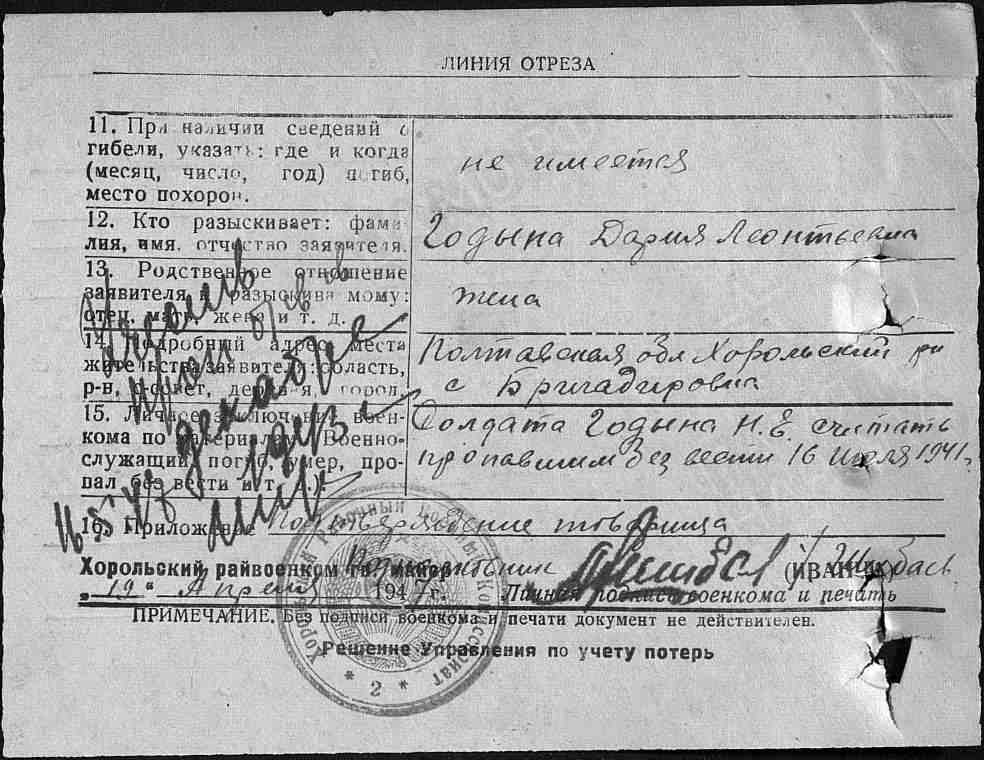 ЛИНИЯ ОТРЕЗА
11. При наличии сведений о
гибели, указать: где и когда
(месяц, число, год) погиб,
место похорон.
не имеется
12. Кто разыскивает: фами-
лия, имя, отчество заявителя.
Годына Дария Леонтьевна
13. Родственное отношение
заявителя к разыскиваемому:
отец, мать, жена и т. д.
жена
14. Подробный адрес места
жительства заявителя: область,
р-н, с-совет, деревня, город.
Полтавская обл Хорольский рн
с Бригадировка
15. Личное заключение воен-
кома по материалам (Военно-
служащий погиб, умер, про-
пал без вести и т. д.).
Солдата Годына Н. Е. считать
пропавшим без вести 16 Июля 1941г
Учесть
проп б/в в
декабре
16. Приложение Подтверждение товарища
Хорольский райвоенком гв. майор Подполковник (ИВАНОВ) / Шимбаев
„19“ Апреля 194 г. Личная подпись военкома и печать
ПРИМЕЧАНИЕ. Без подписи военкома и печати документ не действителен.
Решение Управления по учету потерь
Хорольский Районный Военный Комиссариат
* 2 *